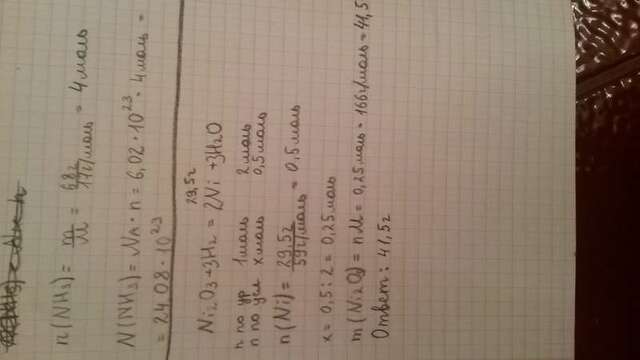 n(NH₃) = m/M = 68г/17г/моль = 4моль
N(NH₃) = Nа · n = 6,02 · 10²³ · 4моль =
= 24,08 · 10²³
29,5г
Ni₂O₃ + 3H₂ = 2Ni + 3H₂O
n по ур 1моль 2моль
n по усл xмоль 0,5моль
n(Ni) = 29,5г/59г/моль = 0,5моль
x = 0,5 : 2 = 0,25моль
m(Ni₂O₃) = nM = 0,25моль · 166г/моль = 41,5
Ответ: 41,5г